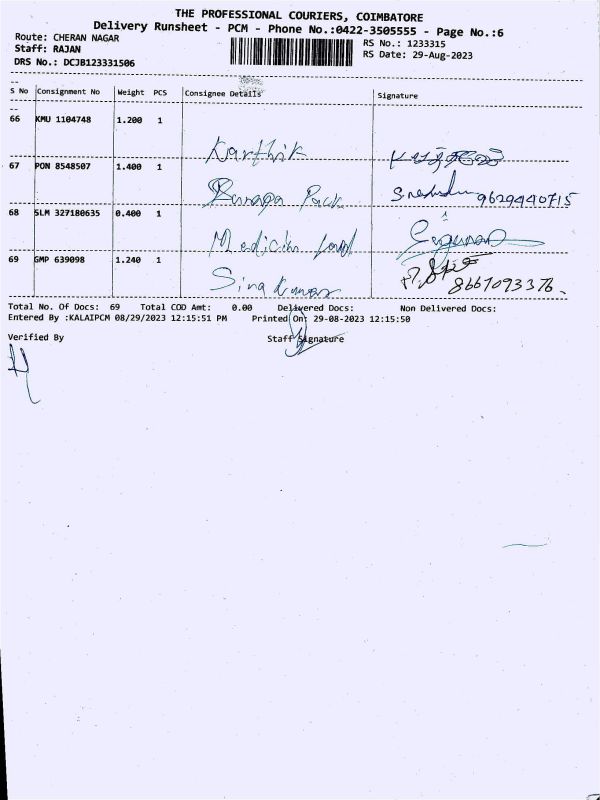 THE PROFESSIONAL COURIERS, COIMBATORE
Delivery Runsheet - PCM - Phone No.:0422-3505555 - Page No.:6
Route: CHERAN NAGAR
RS No.: 1233315
Staff: RAJAN
RS Date: 29-Aug-2023
DRS No.: DCJB123331506
S No Consignment No Weight PCS Consignee Details Signature
66 KMU 1104748 1.200 1
Karthik
67 PON 8548507 1.400 1
9629440715
68 SLM 327180635 0.400 1
69 GMP 639098 1.240 1
8667093376
Total No. Of Docs: 69 Total COD Amt: 0.00 Delivered Docs: Non Delivered Docs:
Entered By :KALAIPCM 08/29/2023 12:15:51 PM Printed On: 29-08-2023 12:15:50
Verified By Staff Signature